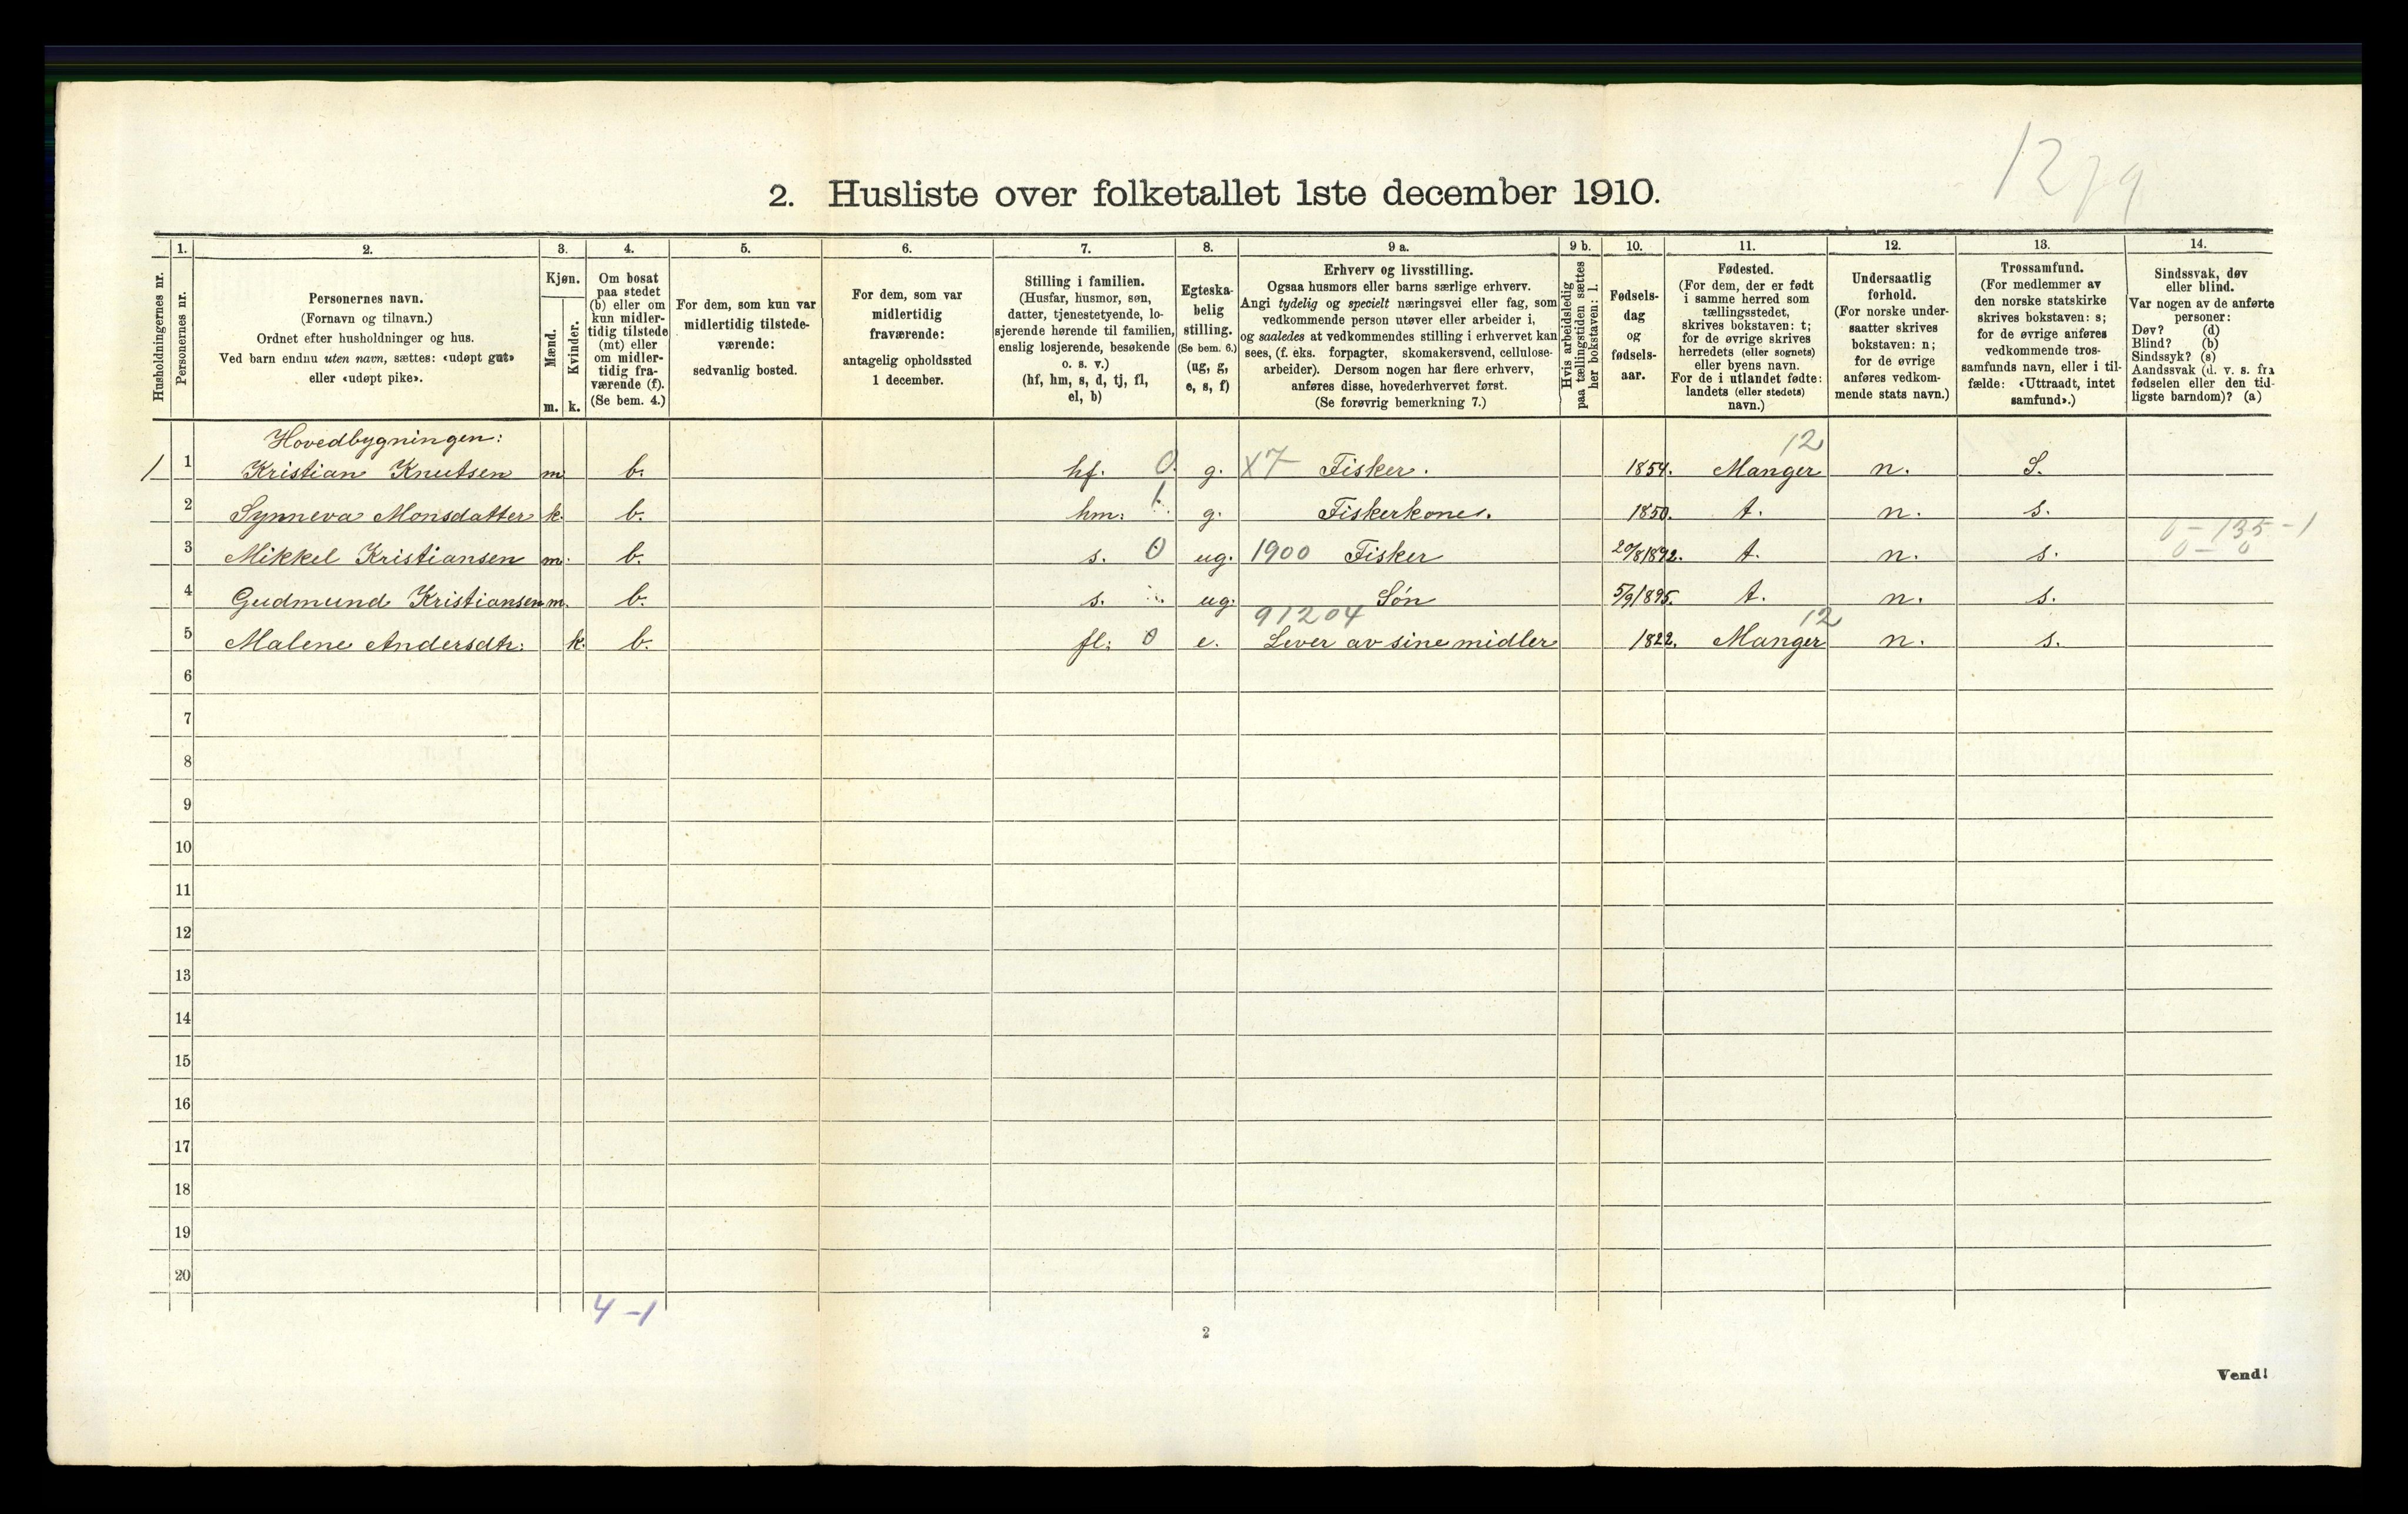 1279
2. Husliste over folketallet 1ste december 1910.
Husholdningernes nr.
1.
Personernes nr.
2.
Personernes navn.
(Fornavn og tilnavn.)
Ordnet efter husholdninger og hus.
Ved barn endnu uten navn, sættes: «udøpt gut»
eller «udøpt pike».
3.
Kjøn.
Mænd.
Kvinder.
m. k.
4.
Om bosat
paa stedet
(b) eller om
kun midler-
tidig tilstede
(mt) eller
om midler-
tidig fra-
værende (f).
(Se bem. 4.)
5.
For dem, som kun var
midlertidig tilstede-
værende:
sedvanlig bosted.
6.
For dem, som var
midlertidig
fraværende:
antagelig opholdssted
1 december.
7.
Stilling i familien.
(Husfar, husmor, søn,
datter, tjenestetyende, lo-
sjerende hørende til familien,
enslig losjerende, besøkende
o. s. v.)
(hf, hm, s, d, tj, fl,
el, b)
8.
Egteska-
belig
stilling.
(Se bem. 6.)
(ug, g,
e, s, f)
9 a.
Erhverv og livsstilling.
Ogsaa husmors eller barns særlige erhverv.
Angi tydelig og specielt næringsvei eller fag, som
vedkommende person utøver eller arbeider i,
og saaledes at vedkommendes stilling i erhvervet kan
sees, (f. eks. forpagter, skomakersvend, cellulose-
arbeider). Dersom nogen har flere erhverv,
anføres disse, hovederhvervet først.
(Se forøvrig bemerkning 7.)
9 b.
Hvis arbeidsledig
paa tællingstiden sættes
her bokstaven: l.
10.
Fødsels-
dag
og
fødsels-
aar.
11.
Fødested.
(For dem, der er født
i samme herred som
tællingsstedet,
skrives bokstaven: t;
for de øvrige skrives
herredets (eller sognets)
eller byens navn.
For de i utlandet fødte:
landets (eller stedets)
navn.)
12.
Undersaatlig
forhold.
(For norske under-
saatter skrives
bokstaven: n;
for de øvrige
anføres vedkom-
mende stats navn.)
13.
Trossamfund.
(For medlemmer av
den norske statskirke
skrives bokstaven: s;
for de øvrige anføres
vedkommende tros-
samfunds navn, eller i til-
fælde: «Uttraadt, intet
samfund».)
14.
Sindssvak, døv
eller blind.
Var nogen av de anførte
personer:
Døv? (d)
Blind? (b)
Sindssyk? (s)
Aandssvak (d. v. s. fra
fødselen eller den tid-
ligste barndom)? (a)
Hovedbygningen: 12
1 1 Kristian Knutsen m. b. hf. 0 g. X7 Fisker. 1854. Manger n. S.
2 Synneva Monsdatter k. b. hm. 1. g. Fiskerkone. 1850. t. n. s.
0 - 135 - 1
3 Mikkel Kristiansen m. b. s. 0 ug. 1900 Fisker 20/8 1892. t. n. s. 0 - 0
4 Gudmund Kristiansen m. b. s. ug. Søn 5/9 1895. t. n. s.
91204 12
5 Malene Andersdtr. k. b. fl. 0 e. Lever av sine midler 1822. Manger n. s.
6
7
8
9
10
11
12
13
14
15
16
17
18
19
20
4 - 1
2
Vend!